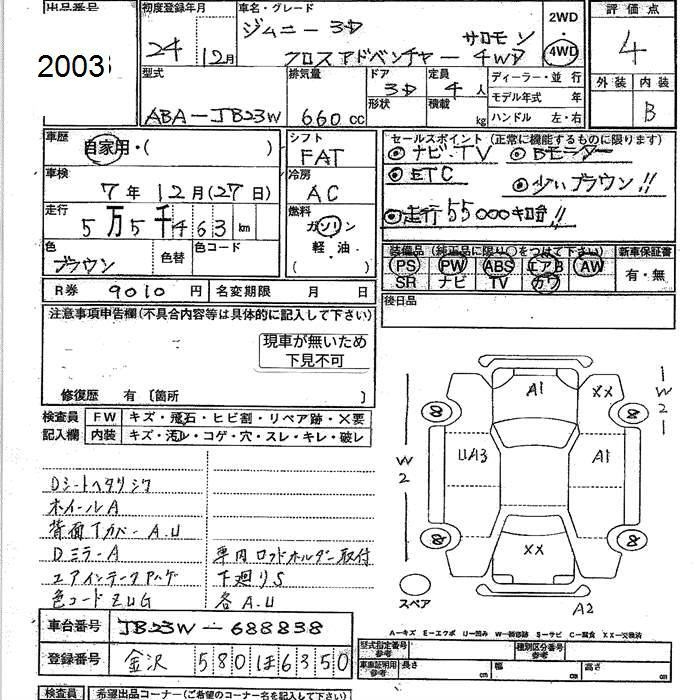 出品番号 初度登録年月 車名・グレード
2003
24 12月 ジムニー 3D
クロスアドベンチャー サロモン 4WD
2WD
4WD
評価点
4
外装 内装
B
型式 排気量 ドア 定員 ディーラー・並行
ABA-JB23W 660 cc 3D 4人
形状 積載 kg
モデル年式 年
ハンドル 左・右
車歴
自家用・( )
車検
7年 12月(27日)
走行
5万5千463 km
色 色替 色コード
ブラウン
シフト
FAT
冷房
AC
燃料
ガソリン
軽・油
( )
セールスポイント (正常に機能するものに限ります)
◎ナビ・TV ◎Bモニター
◎ETC ◎少いブラウン!!
◎走行55000キロ台!!
装備品 (純正品に限り○をつけて下さい) 新車保証書
PS PW ABS エアB AW
SR ナビ TV カワ
有・無
R券 9010 円 名変期限 月 日
後日品
注意事項申告欄(不具合内容等は具体的に記入して下さい)
現車が無いため
下見不可
修復歴 有 〔箇所 〕
検査員 FW キズ・飛石・ヒビ割・リペア跡・×要
記入欄 内装 キズ・汚レ・コゲ・穴・スレ・キレ・破レ
Dシートヘタリシワ
ホイールA
背面Tカバー A.U
Dミラー A
エアインテークアハゲ
色コード ZUG
車内ロッドホルダー取付
下廻りS
各A.U
A1 XX
8 8
W2 W2
UA3 A1
8 8
XX
スペア
A2
A=キズ E=エクボ U=凹み W=補修跡 S=サビ C=腐食 XX=交換済
車台番号 JB23W-688838
登録番号 金沢 580 ほ 6350
型式指定番号 参考 種別区分番号 参考
車庫証明用 参考 長さ cm 幅 cm 高さ cm
検査員 希望出品コーナー(ご希望のコーナー名を記入して下さい)